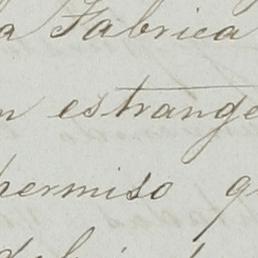 a Fabrica
n estrange
permiso q